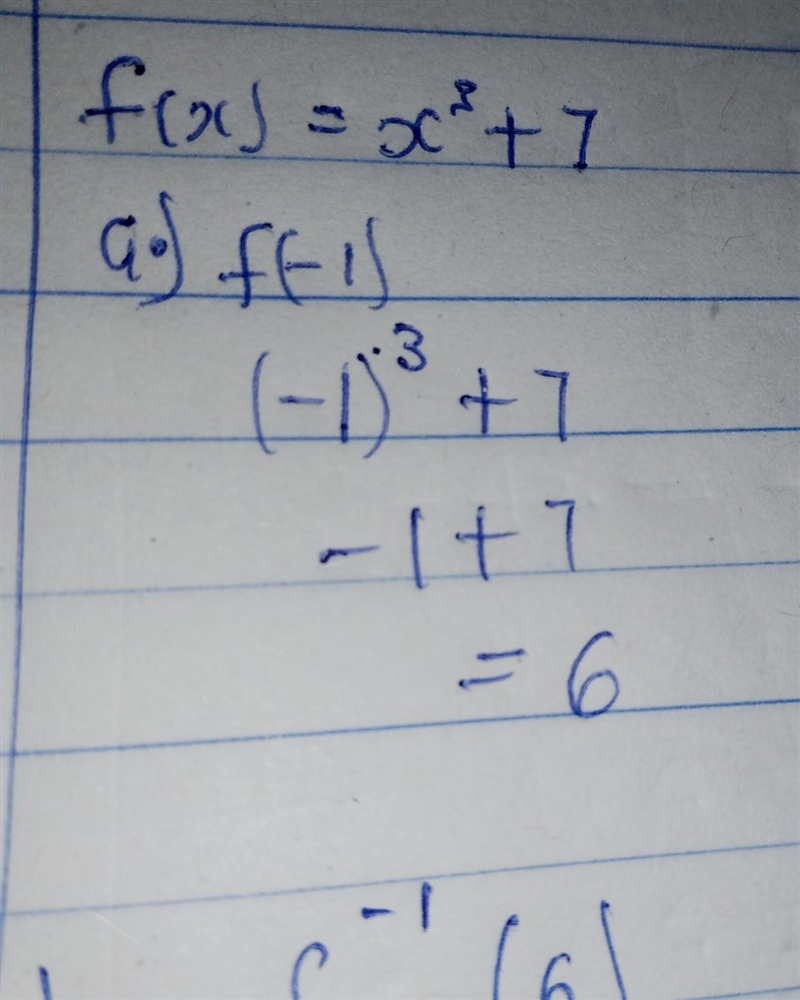 f(x) = x³ + 7
a.) f(-1)
(-1)³ + 7
-1 + 7
= 6
f⁻¹(6)